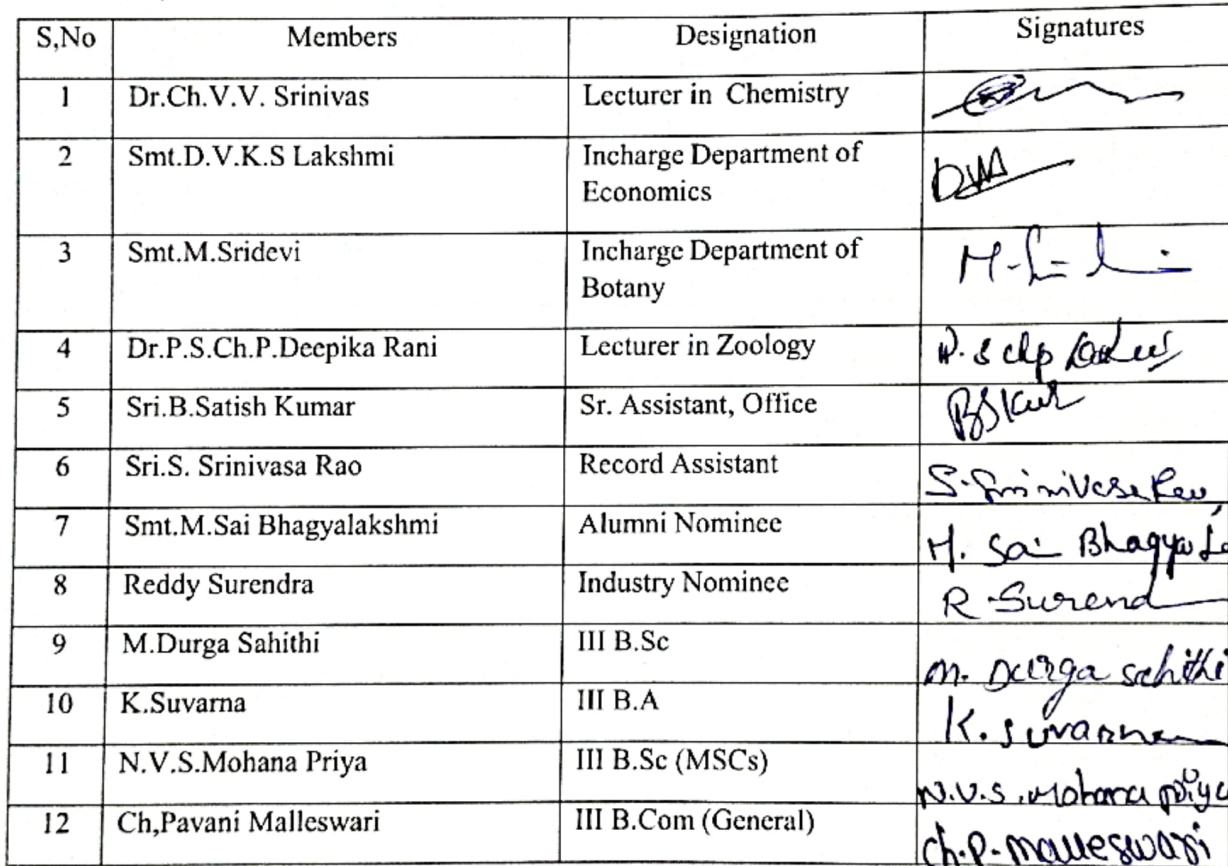 S,No Members Designation Signatures
1 Dr.Ch.V.V. Srinivas Lecturer in Chemistry
2 Smt.D.V.K.S Lakshmi Incharge Department of
Economics
3 Smt.M.Sridevi Incharge Department of
Botany
4 Dr.P.S.Ch.P.Deepika Rani Lecturer in Zoology
5 Sri.B.Satish Kumar Sr. Assistant, Office
6 Sri.S. Srinivasa Rao Record Assistant S. Srinivasa Rao
7 Smt.M.Sai Bhagyalakshmi Alumni Nominee M. Sai Bhagya La
8 Reddy Surendra Industry Nominee R. Surend
9 M.Durga Sahithi III B.Sc M. Durga Sahithi
10 K.Suvarna III B.A K. Suvarna
11 N.V.S.Mohana Priya III B.Sc (MSCs) N.V.S. Mohana Priya
12 Ch,Pavani Malleswari III B.Com (General) Ch.P. Malleswari